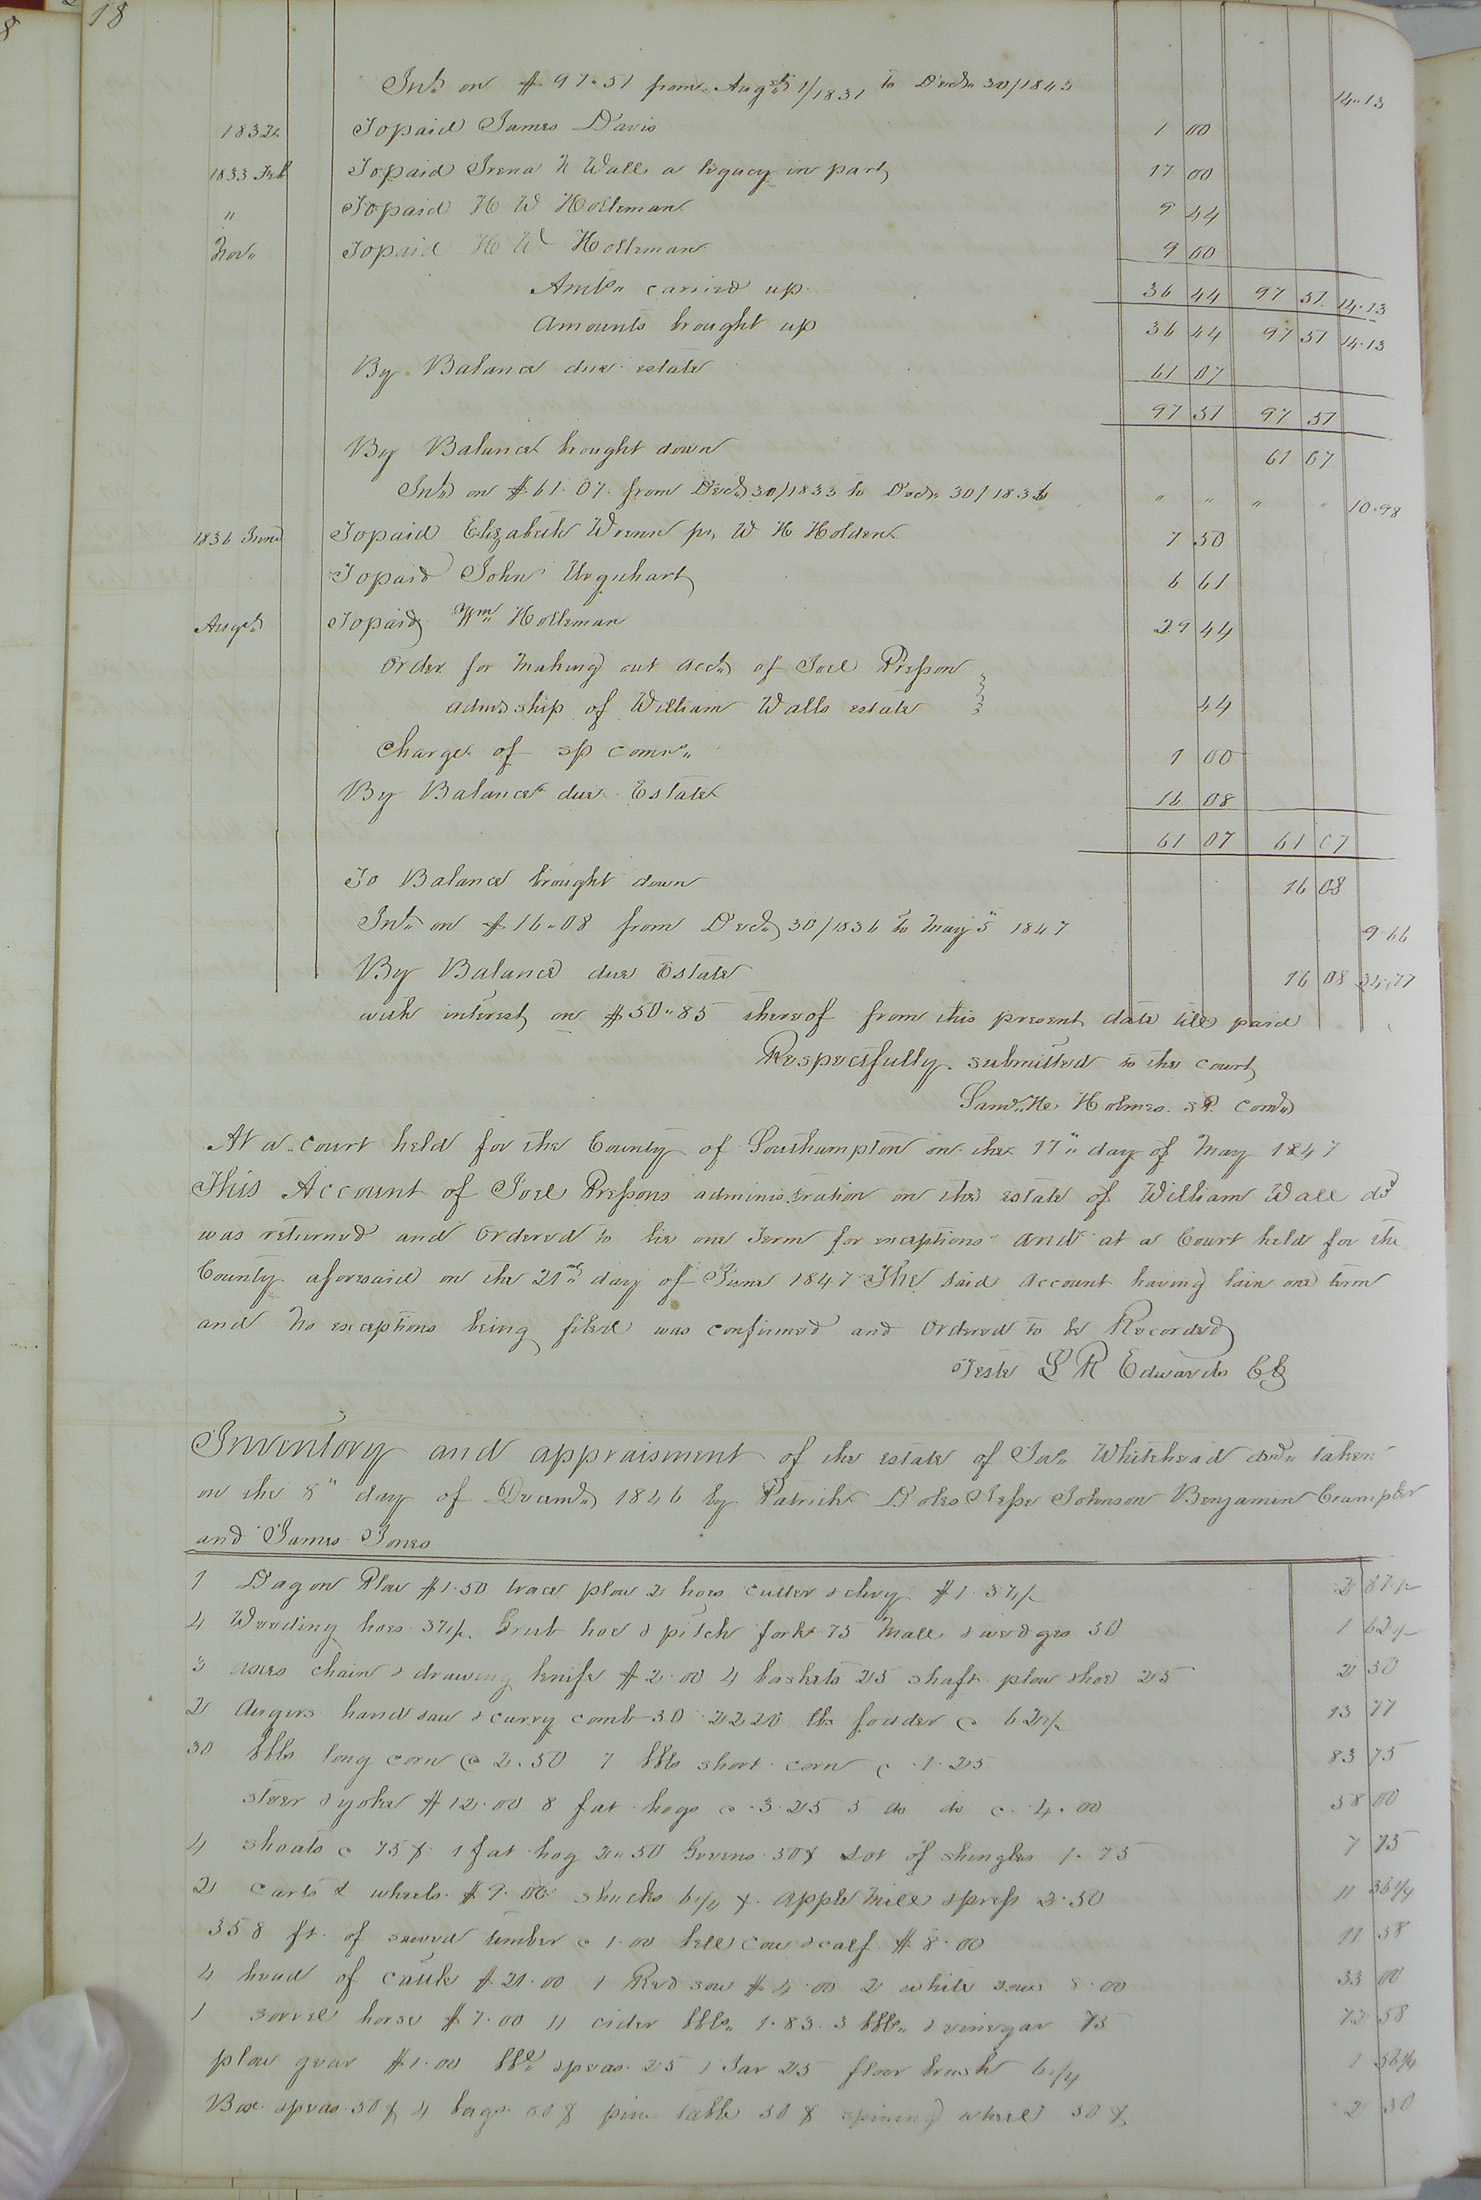 18
Int. on $97.51 from Augst 1/1831 to Decr 30/1843 14.13
1832 To paid James Davis 1 00
1833 Feb To paid Irena N Wall a legacy in part 17 00
" To paid H W Holleman 9 44
Nov. To paid H W Holleman 9 00
Amts. carried up 36 44 97 51 14.13
Amounts brought up 36 44 97 51 14.13
By Balance due estate 61 07
97 51 97 51
By Balance brought down 61 07
Int. on $61.07 from Decr 30/1833 to Decr 30/1836 " " " " 10.98
1836 June To paid Elizabeth Wrenn pr W H Holden 7 50
To paid John Urquhart 6 61
Augst To paid Wm Holleman 29 44
Order for making out acct. of Joel Presson
admrship of William Walls estate 44
Charge of sp comr. 1 00
By Balance due Estate 16 08
61 07 61 07
To Balance brought down 16 08
Int. on $16.08 from Decr 30/1836 to May 5" 1847 9.66
By Balance due Estate 16 08 34.77
with interest on $50.85 thereof from this present date till paid
Respectfully submitted to the court
Holmes sp. Comr
At a court held for the County of Southampton on the 17" day of May 1847
This Account of Joel Pressons administration on the estate of William Wall dcd
was returned and ordered to lie one Term for exceptions and at a Court held for the
County aforesaid on the 21st day of June 1847 The said account having lain one term
and no exceptions being filed was confirmed and ordered to be Recorded
Teste L R Edwards CC
Inventory and appraisment of the estate of Whitehead decd. taken
on the 8" day of Decemb. 1846 by Patrick Doles Jesse Johnson Benjamin Crumpler
and James Jones
1 Dagon Plow $1.50 trace plow 2 hoes cutter & $1.37½ 2 87½
4 Weeding hoes 37½ Grub hoe & pitch fork 75 Mall & wedges 50 1 62½
3 axes chain & drawing knife $2.00 4 baskets 25 shaft plow shoe 25 2 50
2 Augers hand saw & curry comb 30 2220 lbs fodder @ 62½ 13 77
30 bbls long corn @ 2.50 7 bbls short corn @ 1.25 83 75
steer & yoke $12.00 8 fat hogs @ 3.25 5 do do @ 4.00 58 00
4 shoats @ 75¢ 1 fat hog 2.50 50¢ Lot of shingles 1.75 7 75
2 carts & wheels $9.00 shucks 6¼ ¢ apple mill & press 2.50 11 56¼
358 ft. of sawed timber @ 1.00 bell cow & calf $8.00 11 58
4 head of cattle $21.00 1 Red sow $4.00 2 white sows 8.00 33 00
1 sorrel horse $7.00 11 cider bbls. 1.83 3 bbls. & vinegar 75 58
plow gear $1.00 bbl. & peas 25 1 Jar 25 floor brush 6¼ 1 56¼
Box & peas 50¢ 4 bags 60¢ pine table 50¢ spining wheel 50¢ 2 30